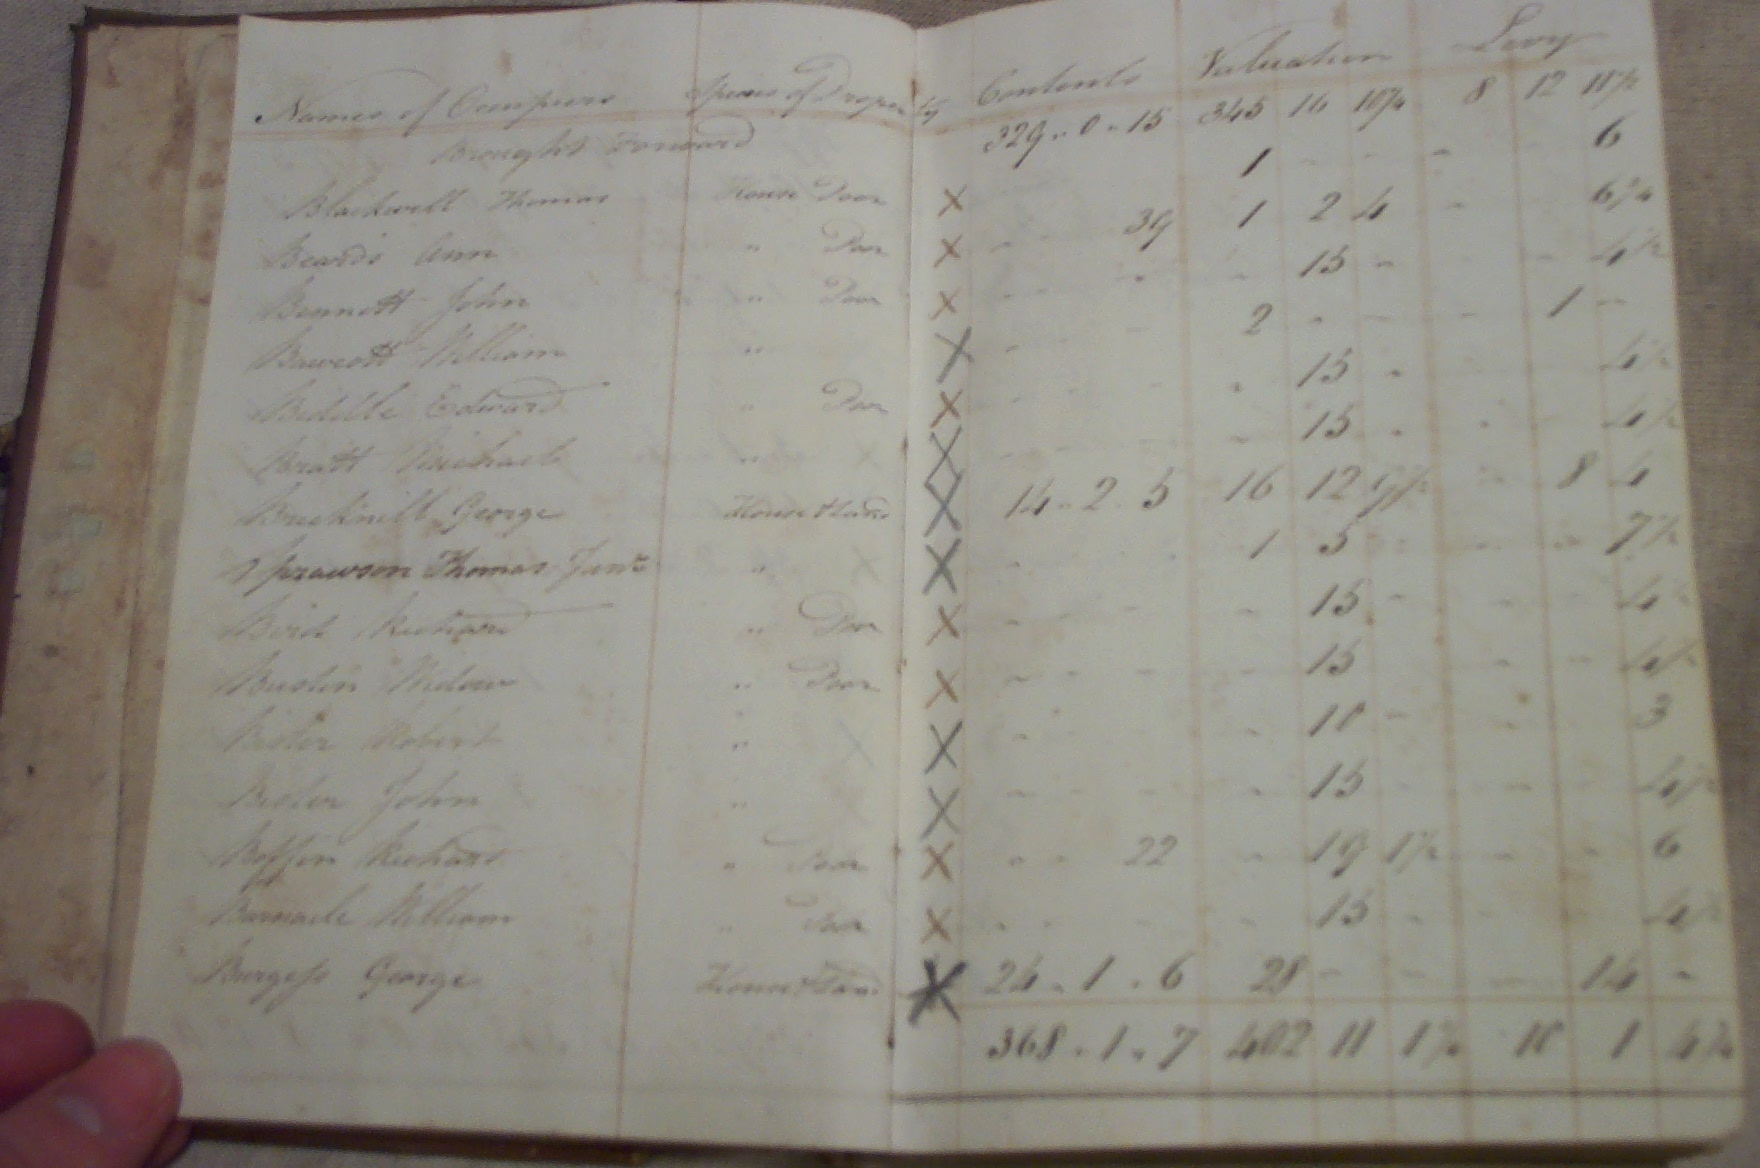 Names of Occupiers Species of Property Contents Valuation Levy
Brought Forward 329 .. 0 .. 15 345 16 10¼ 8 12 11½
Blackwell Thomas House Poor X 1 - - - - 6
Beards Ann " Poor X - - 39 1 2 4 - - 6¾
Bennett John " Poor X - - - - 15 - - - 4½
Bawcott William " X - - 2 - - - 1 -
Edward " Poor X - - - - 15 - - - 4½
Bratt Michael " X - - - - 15 - - - 4½
Bucknill George House & Land X 14 .. 2 . 5 16 12 9½ - 8 4
Sprawson Thomas Junr " X - - 1 5 - - - 7½
Bird Richard " Poor X - - - - 15 - - - 4½
Buslin Widow " Poor X - - - - 15 - - - 4½
Bister Robert " X - - - - 10 - - - 3
Bister John " X - - - - 15 - - - 4½
Boffin Richard " Poor X - - 22 - 19 1½ - - 6
Barnacle William " Poor X - - - - 15 - - - 4½
Burgess George House & Land X 24 . 1 . 6 28 - - - 14 -
368 . 1 . 7 402 11 1½ 10 1 4¾